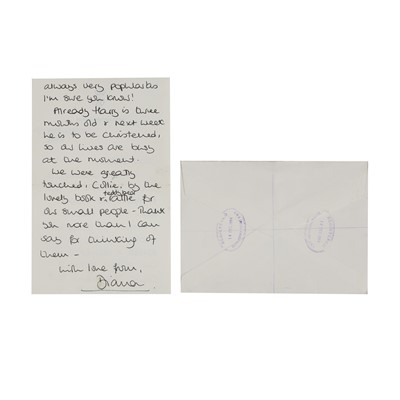 always very popular as
I'm sure you know!
Already Harry is three
months old & next week
he is to be christened,
so our lives are busy
at the moment.
We were greatly
touched, Cillie, by the
lovely book & teddybear rattle for
our small people - thank
you more than I can
say for thinking of
them -
with love from,
Diana